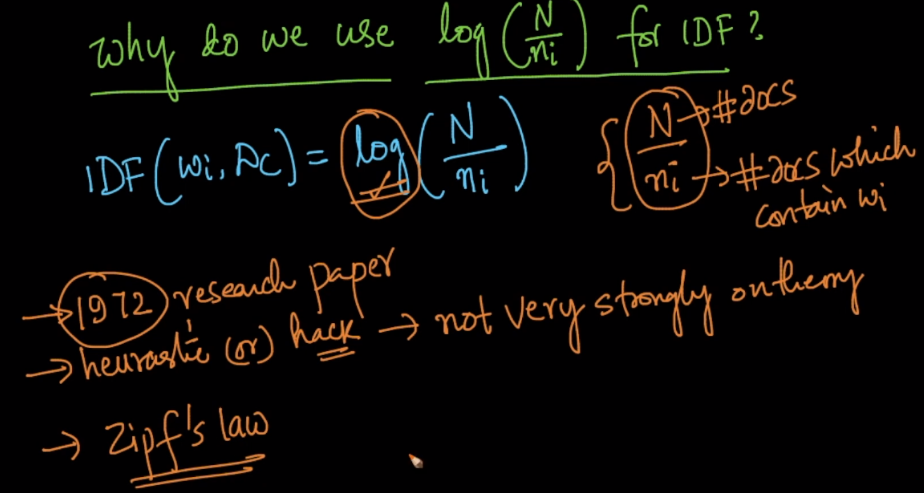 why do we use log(N/ni) for IDF?
IDF(wi, Dc) = log(N/ni)
{N/ni
N → #docs
ni → #docs which contain wi
→ 1972 research paper
→ heurastic (or) hack → not very strongly on theory
→ Zipf's law